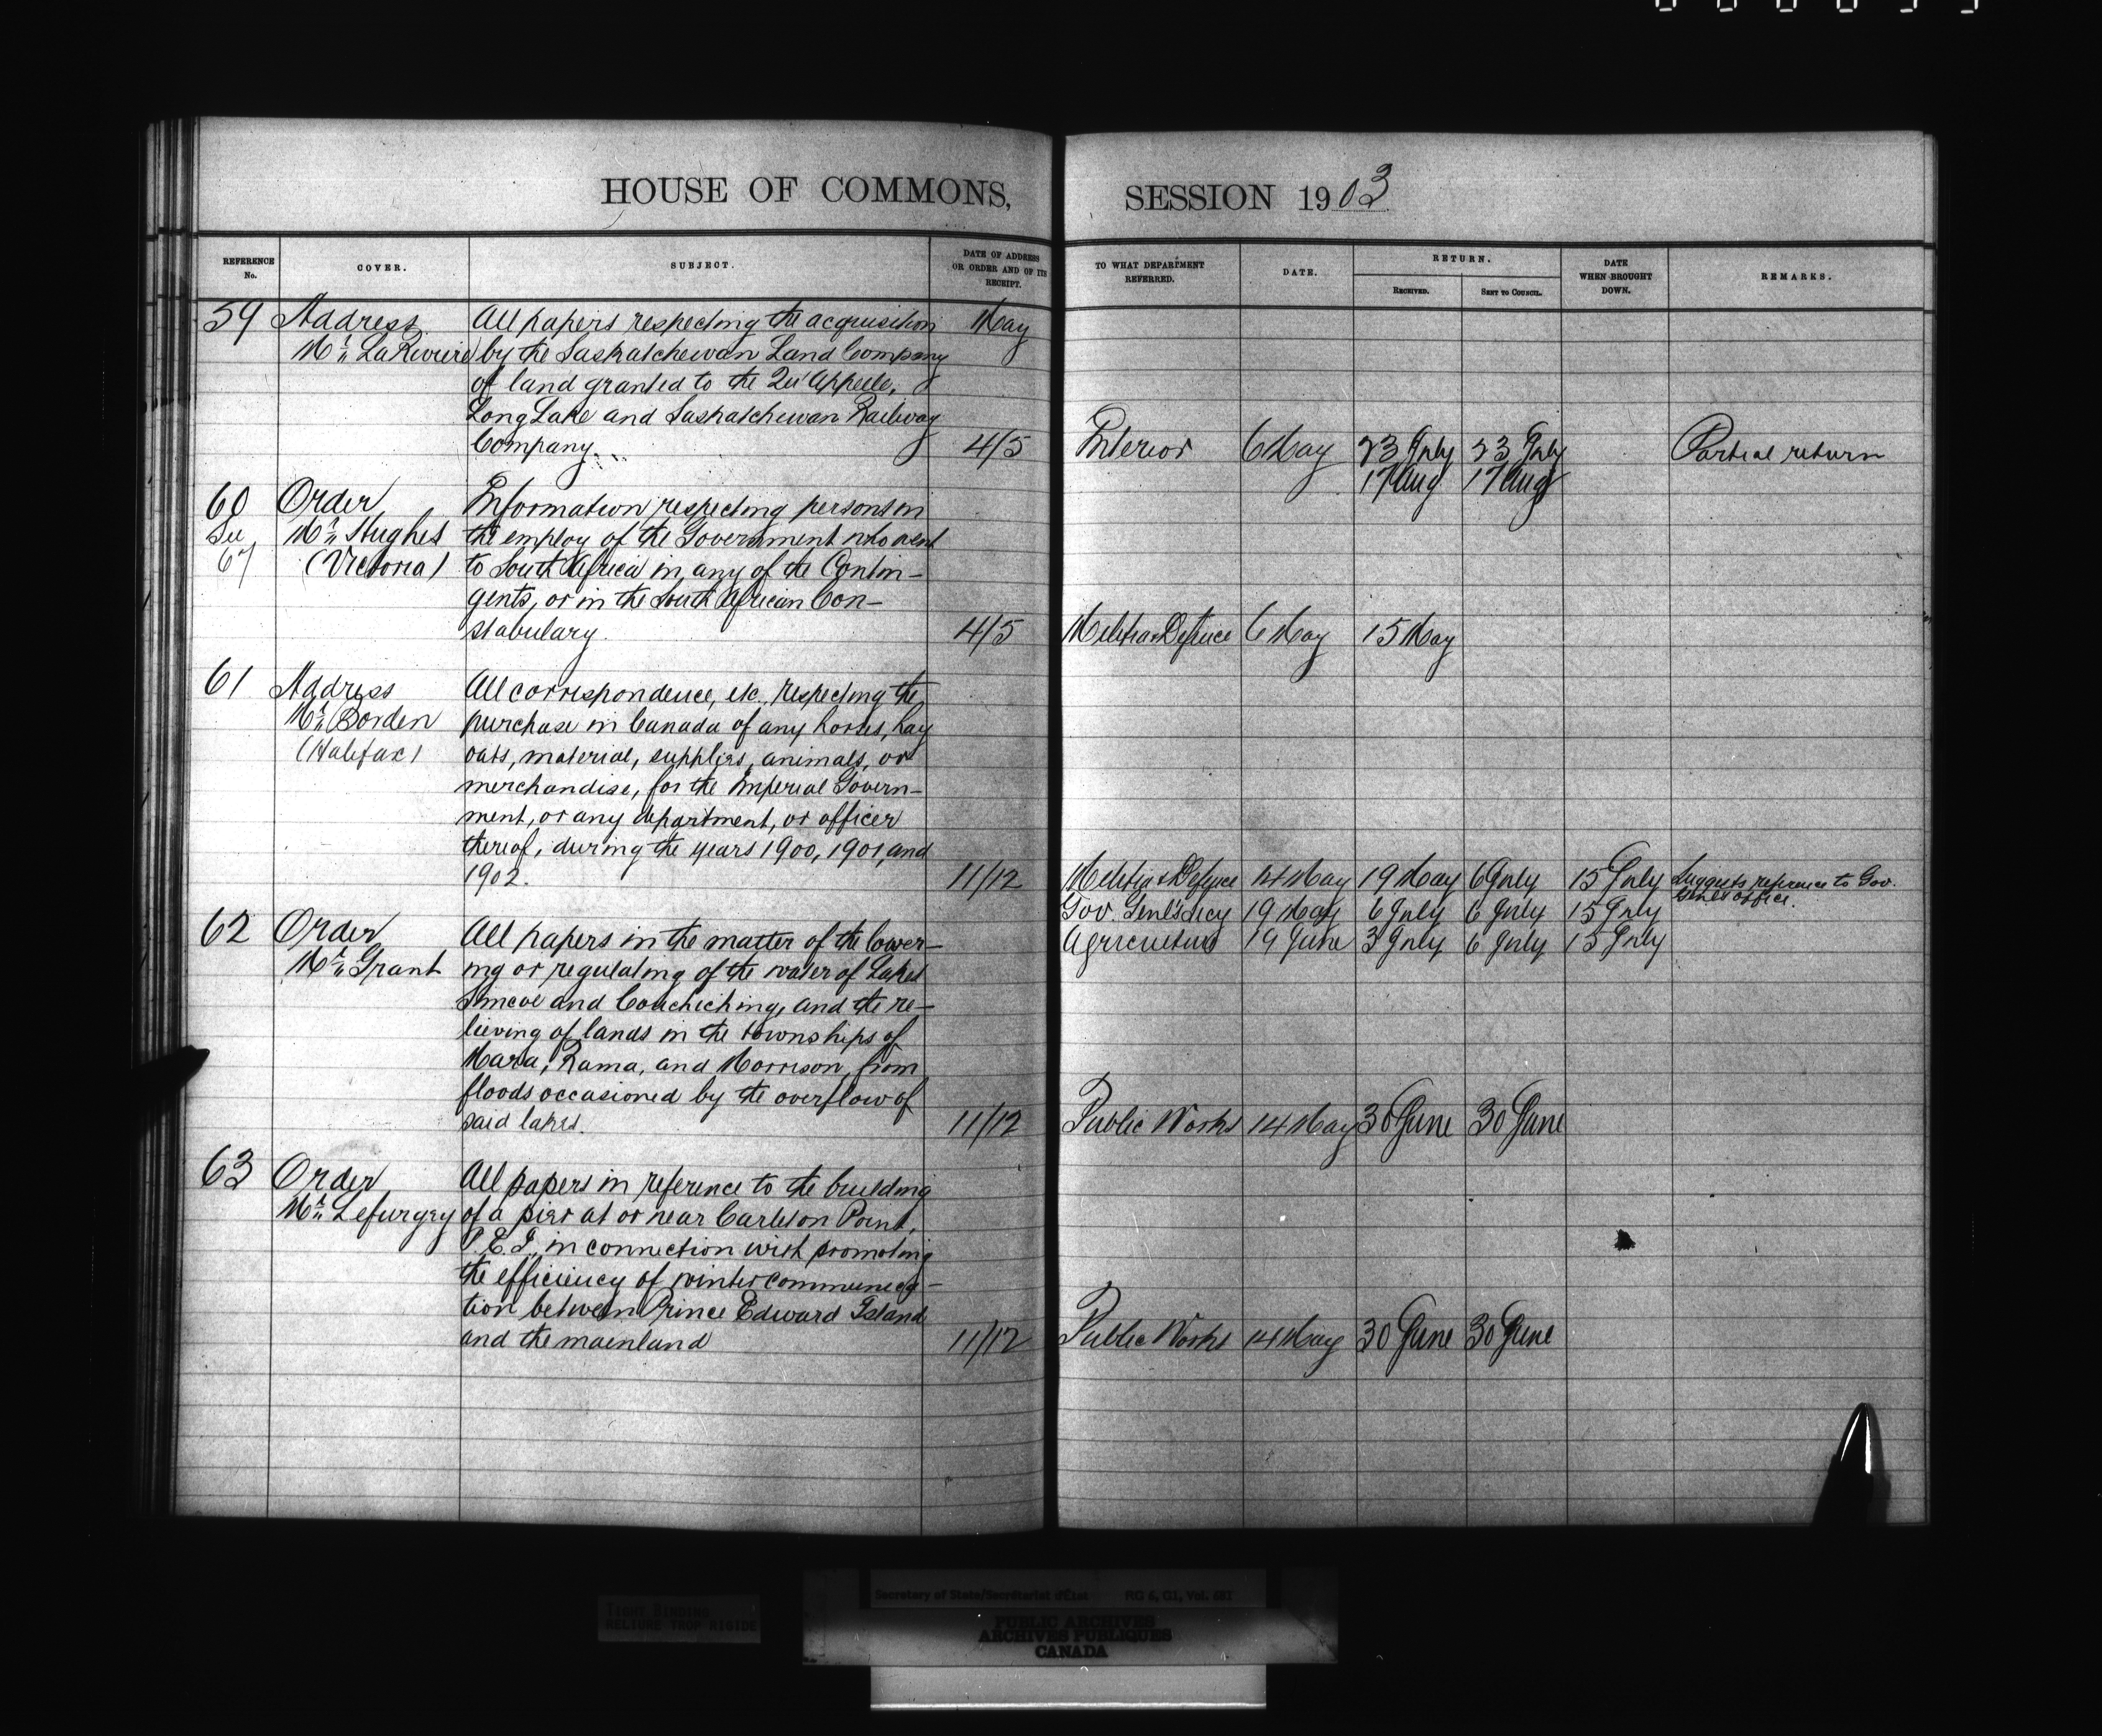 HOUSE OF COMMONS,
REFERENCE No.
COVER.
SUBJECT.
DATE OF ADDRESS OR ORDER AND OF ITS RECEIPT.
59 Address All papers respecting the acquisition May
Mr. LaRiviere by the Saskatchewan Land Company
of land granted to the Qu'Appelle,
Long Lake and Saskatchewan Railway
Company. 4/5
60 Order Information respecting persons in
See Mr. Hughes the employ of the Government who went
67 (Victoria) to South Africa in any of the Contin-
gents, or in the South African Con-
stabulary. 4/5
61 Address All correspondence, etc., respecting the
Mr. Borden purchase in Canada of any horses, hay
(Halifax) oats, material, supplies, animals, or
merchandise, for the Imperial Govern-
ment, or any department, or officer
thereof, during the years 1900, 1901, and
1902. 11/12
62 Order All papers in the matter of the lower-
Mr. Grant ing or regulating of the water of Lakes
Simcoe and Couchiching, and the re-
lieving of lands in the townships of
Mara, Rama, and Morrison, from
floods occasioned by the overflow of
said lakes. 11/12
63 Order All papers in reference to the building
Mr. Lefurgey of a pier at or near Carleton Point,
P.E.I., in connection with promoting
the efficiency of winter communica-
tion between Prince Edward Island
and the mainland 11/12
SESSION 1903
TO WHAT DEPARTMENT REFERRED.
DATE.
RETURN.
RECEIVED.
SENT TO COUNCIL.
DATE WHEN BROUGHT DOWN.
REMARKS.
Interior 6 May 23 July 23 July Partial return
17 Aug 17 Aug
Militia & Defence 6 May 15 May
Militia & Defence 14 May 19 May 6 July 15 July Suggests reference to Gov.
Genl's Office.
Gov. Genl's Secy 19 May 6 July 6 July 15 July
Agriculture 19 June 3 July 6 July 15 July
Public Works 14 May 30 June 30 June
Public Works 14 May 30 June 30 June
TIGHT BINDING
RELIURE TROP RIGIDE
Secretary of State/Secrétariat d'État RG 6, G1, Vol. 
PUBLIC ARCHIVES
ARCHIVES PUBLIQUES
CANADA